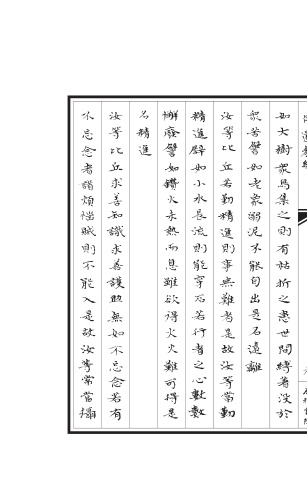 如大樹眾鳥集之則有枯折之患世間縛著沒於
眾苦譬如老象溺泥不能自出是名遠離
汝等比丘若勤精進則事無難者是故汝等當勤
精進譬如小水長流則能穿石若行者之心數數
懈廢譬如鑽火未熱而息雖欲得火火難可得是
名精進
汝等比丘求善知識求善護助無如不忘念若有
不忘念者諸煩惱賊則不能入是故汝等常當攝